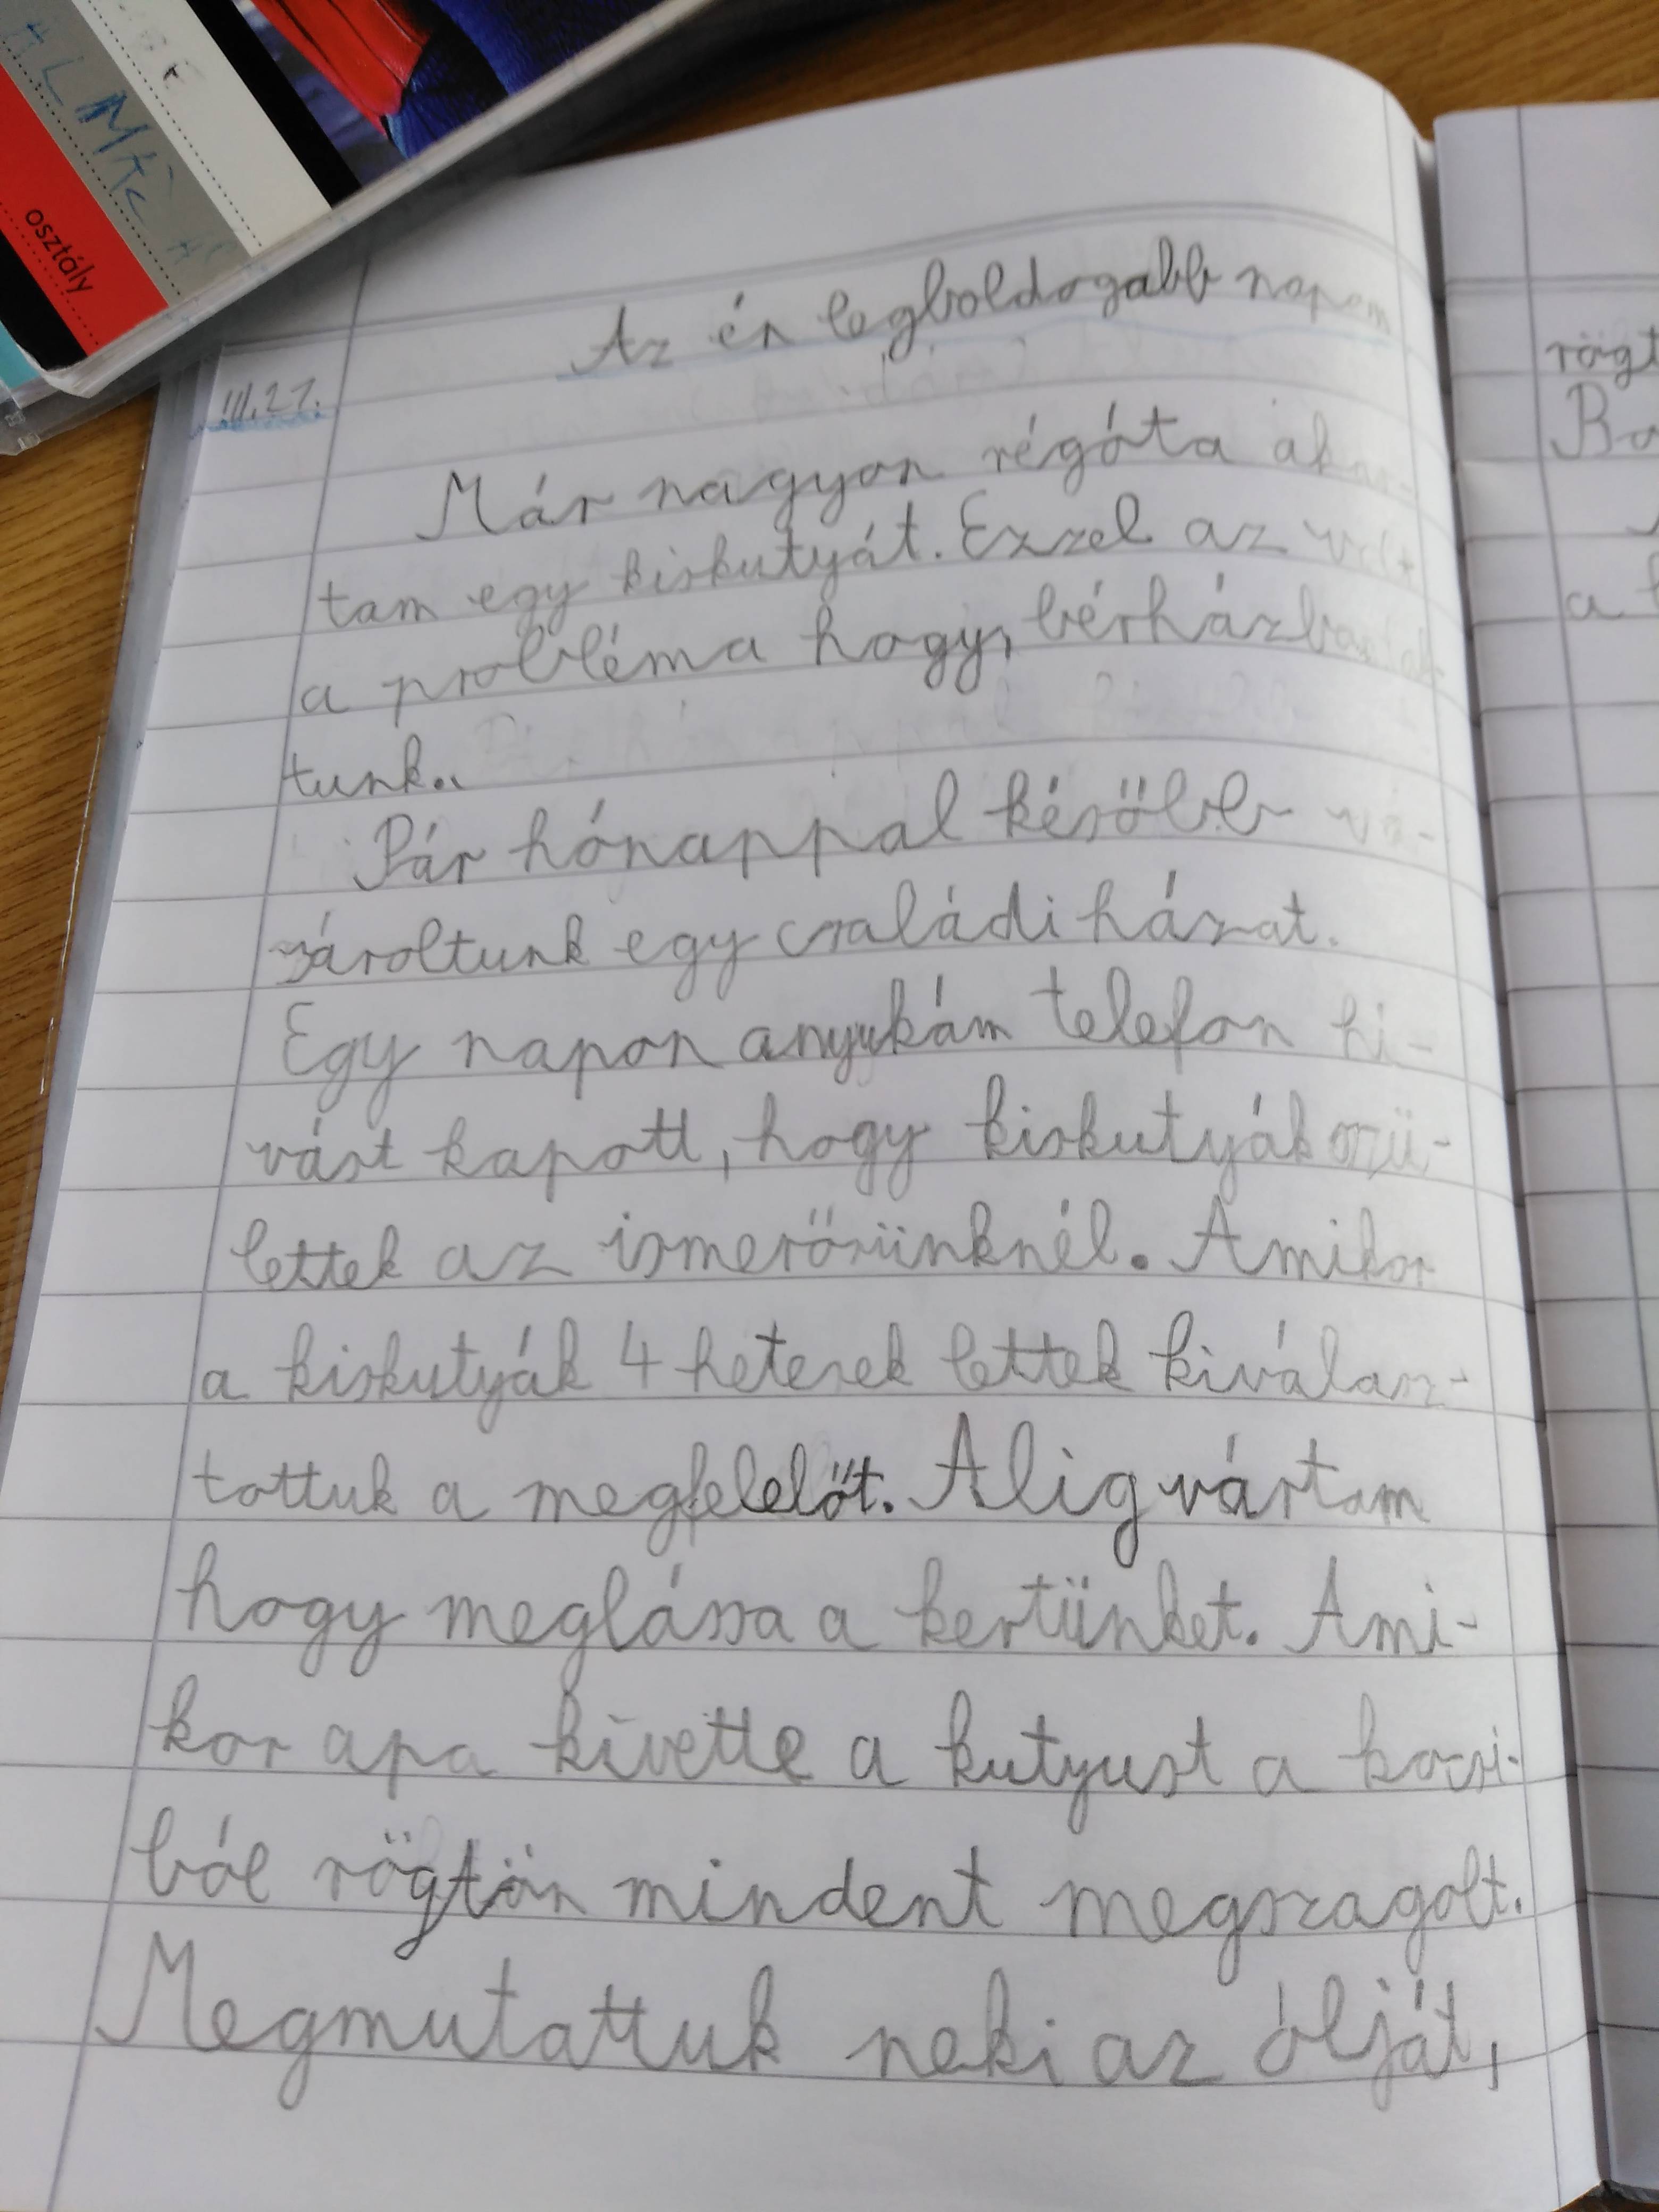 osztály
Az én legboldogabb napom
III.21.
Már nagyon régóta akar-
tam egy kiskutyát. Ezzel az volt
a probléma hogy, bérházban lak-
tunk..
Pár hónappal később vá-
sároltunk egy családi házat.
Egy napon anyukám telefon hi-
vást kapott, hogy kiskutyák szü-
lettek az ismerősünknél. Amikor
a kiskutyák 4 hetesek lettek kiválasz-
tottuk a megfelelőt. Alig vártam
hogy meglássa a kertünket. Ami-
kor apa kivette a kutyust a kocsi-
ból rögtön mindent megszagolt.
Megmutattuk neki az ólját,